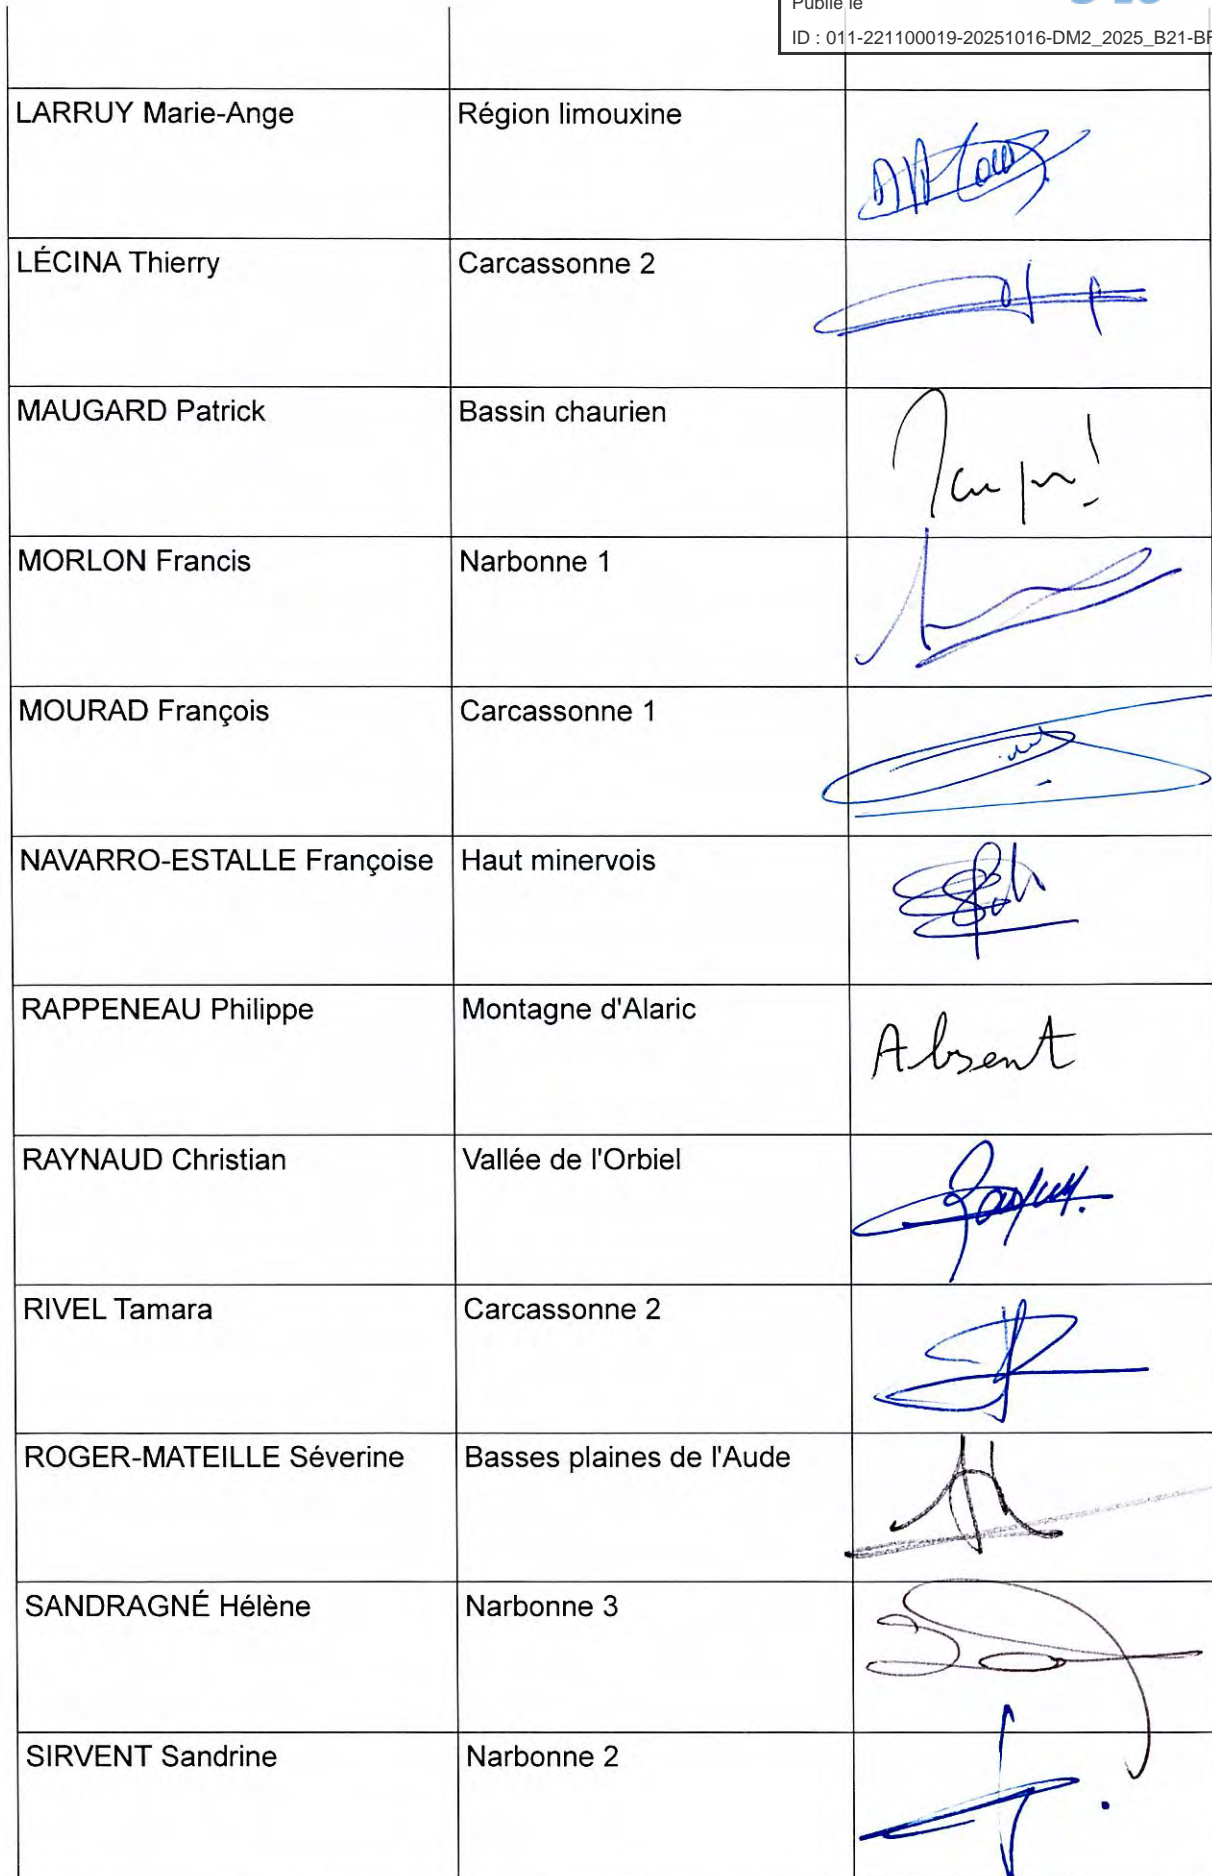 Publié le
ID : 011-221100019-20251016-DM2_2025_B21-BF
LARRUY Marie-Ange Région limouxine
LÉCINA Thierry Carcassonne 2
MAUGARD Patrick Bassin chaurien
MORLON Francis Narbonne 1
MOURAD François Carcassonne 1
NAVARRO-ESTALLE Françoise Haut minervois
RAPPENEAU Philippe Montagne d'Alaric Absent
RAYNAUD Christian Vallée de l'Orbiel
RIVEL Tamara Carcassonne 2
ROGER-MATEILLE Séverine Basses plaines de l'Aude
SANDRAGNÉ Hélène Narbonne 3
SIRVENT Sandrine Narbonne 2